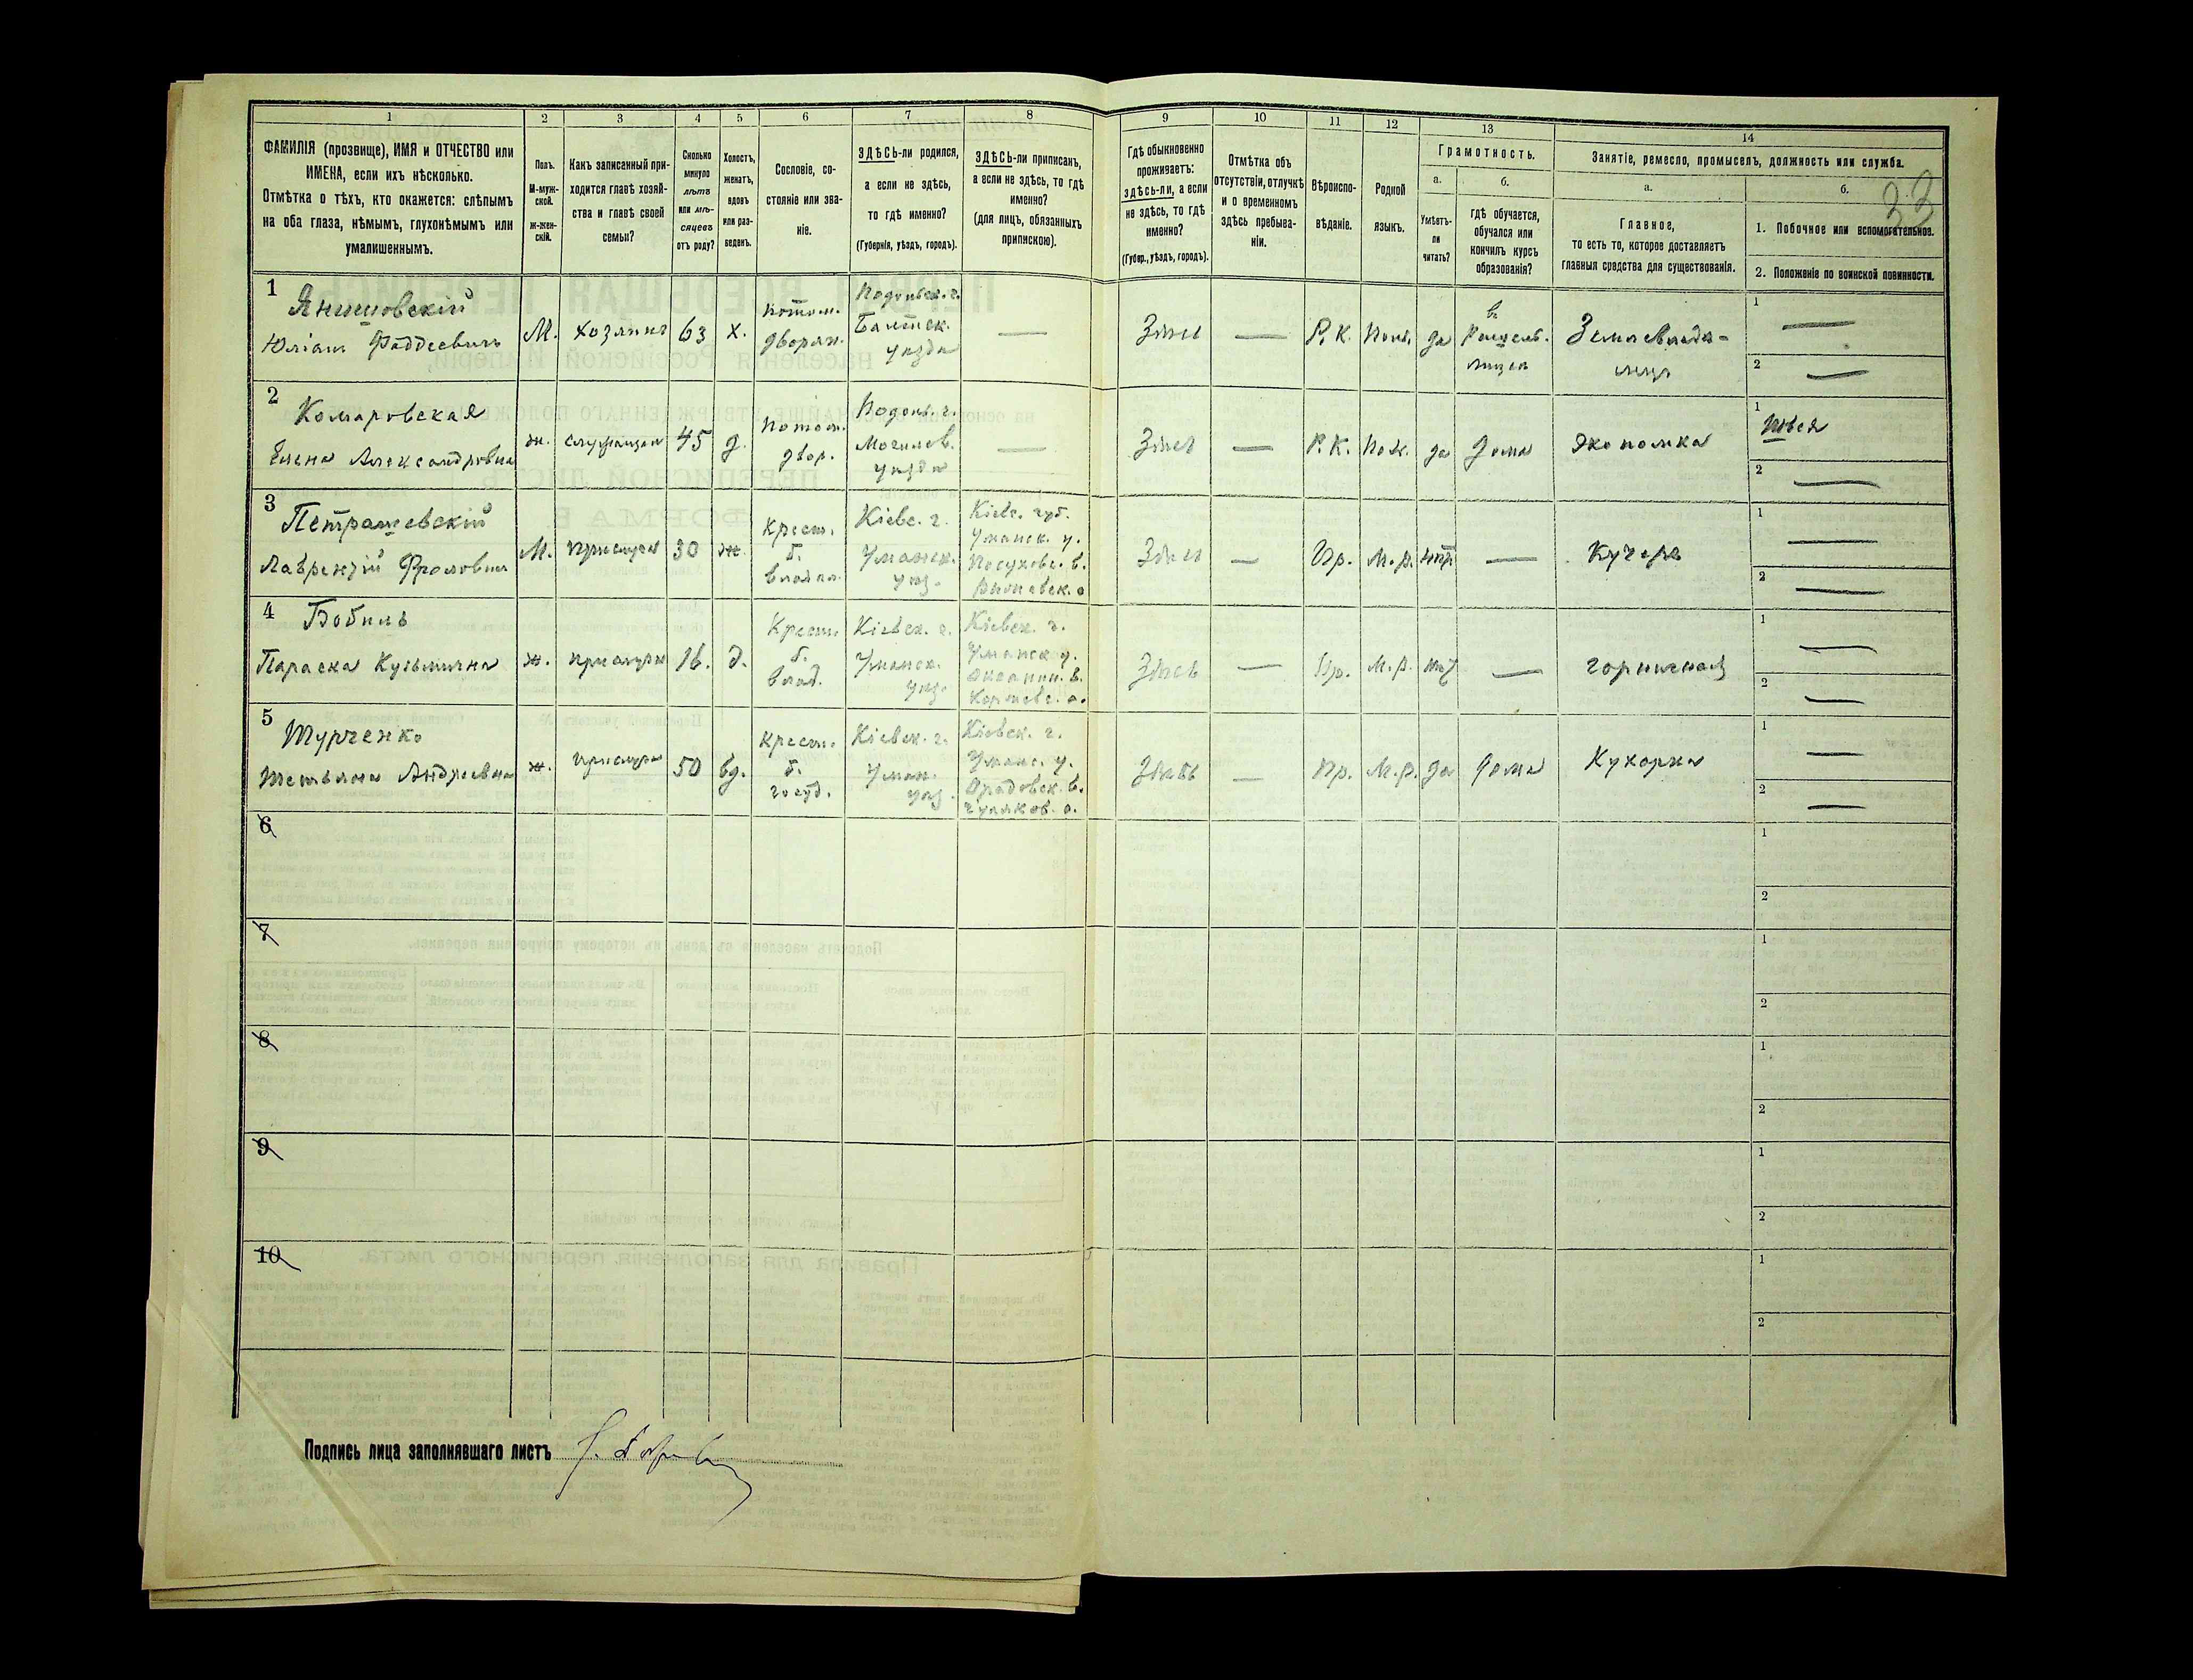 1 2 3 4 5 6 7 8 9 10 11 12 13 14
ФАМИЛІЯ (прозвище), ИМЯ и ОТЧЕСТВО или
ИМЕНА, если ихъ нѣсколько.
Отмѣтка о тѣхъ, кто окажется: слѣпымъ
на оба глаза, нѣмымъ, глухонѣмымъ или
умалишеннымъ.
Полъ.
М-муж-
ской.
Ж-жен-
скій.
Какъ записанный при-
ходится главѣ хозяй-
ства и главѣ своей
семьи?
Сколько
минуло
лѣтъ
или мѣ-
сяцевъ
отъ роду?
Холостъ,
женатъ,
вдовъ
или раз-
веденъ.
Сословіе, со-
стояніе или зва-
ніе.
ЗДѢСЬ-ли родился,
а если не здѣсь,
то гдѣ именно?
(Губернія, уѣздъ, городъ).
ЗДѢСЬ-ли приписанъ,
а если не здѣсь, то гдѣ
именно?
(для лицъ, обязанныхъ
припискою).
Гдѣ обыкновенно
проживаетъ:
здѣсь-ли, а если
не здѣсь, то гдѣ
именно?
(Губер., уѣздъ, городъ).
Отмѣтка объ
отсутствіи, отлучкѣ
и о временномъ
здѣсь пребыва-
ніи.
Вѣроиспо-
вѣданіе.
Родной
языкъ.
Грамотность.
а.
Умѣетъ-
ли
читать?
б.
гдѣ обучается,
обучался или
кончилъ курсъ
образованія?
Занятіе, ремесло, промыселъ, должность или служба.
а.
Главное,
то есть то, которое доставляетъ
главныя средства для существованія.
б.
33
1. Побочное или вспомогательное.
2. Положеніе по воинской повинности.
1
Юліанъ Фаддеевичъ
М.
хозяинъ
63
х.
потом.
дворян.
Подольск. г.
Балтск.
уѣзда
—
Здѣсь
—
Р. К.
Польс.
да
въ
лицеѣ
Землевладѣ-
лецъ
1 —
2 —
2
Комаровская
Елена Александровна
ж.
служащая
45
д.
потом.
двор.
Подоль. г.
Могилев.
уѣзда
—
Здѣсь
—
Р. К.
Пол.
да
дома
Экономка
1
2 —
3
Петрашевскій
Лаврентій Фроловичъ
М.
прислуга
30
ж.
крест.
б.
владѣл.
Кіевс. г.
Уманск.
уѣз.
Кіевс. губ.
Уманск. у.
Здѣсь
—
Пр.
М. р.
нѣтъ
—
Кучеръ
1 —
2 —
4
Бобылъ
Параска Кузьминна
ж.
прислуга
16.
д.
Крест.
б.
влад.
Кіевск. г.
Уманск.
уѣз.
Кіевск. г.
Уманск. у.
Здѣсь
—
Пр.
М. р.
нѣт
—
горничная
1 —
2 —
5
Турченко
Татьяна Андреевна
ж.
прислуга
50
вд.
крест.
б.
госуд.
Кіевск. г.
Уман.
уѣз.
Кіевск. г.
Уманс. у.
Здѣсь
—
Пр.
М. р.
да
дома
Кухарка
1 —
2 —
6
1
2
7
1
2
8
1
2
9
1
2
10
1
2
Подпись лица заполнявшаго листъ